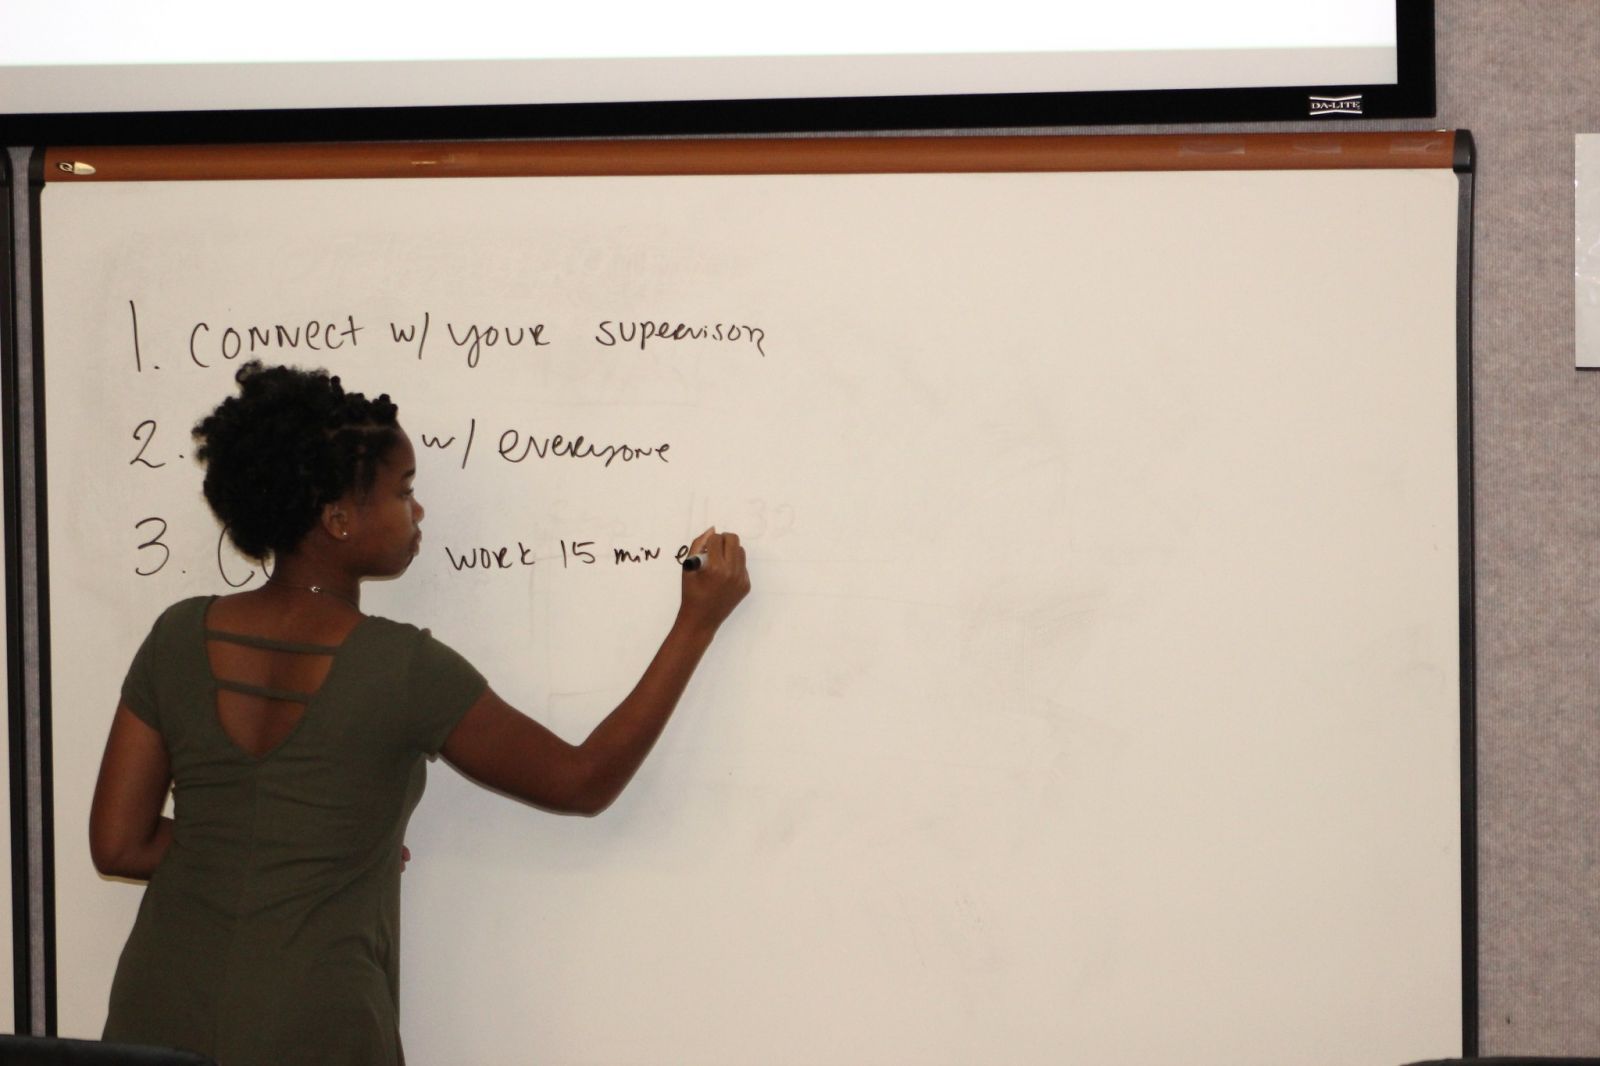 DA-LITE
1. CONNECT W/ YOUR SUPERVISOR
2. W/ EVERYONE
3. WORK 15 MIN